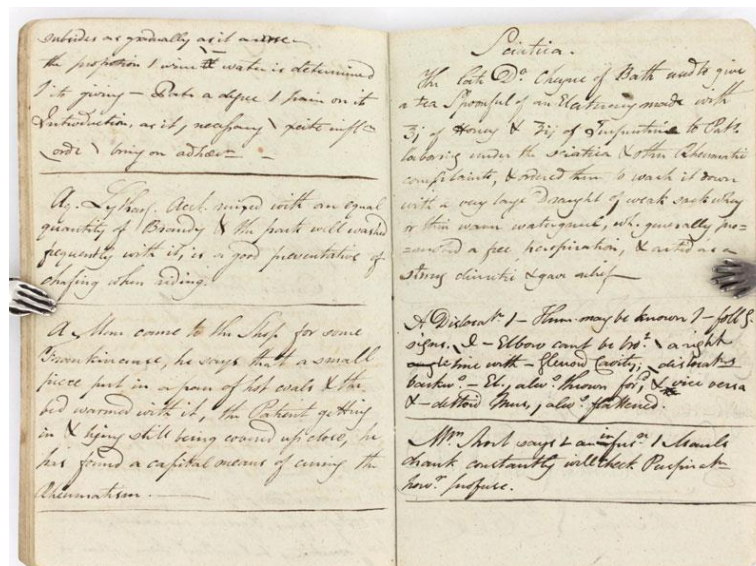 subsides as gradually as it arose
the proportion wine & water is determined
its giving — Pain on it
Introduction, as it, excite
bring on
Aq. Lytharg. Acet. mixed with an equal
quantity of Brandy & the parts well washed
frequently with it, is a good preventative of
chafing when riding.
A Man came to the Shop for some
Frankincense, he says that a small
piece put in a pan of hot coals & the
bed warmed with it, the Patient getting
in & lying still being covered up close, he
has found a capital means of curing the
Rheumatism.
Sciatica.
The late Dr. Cheyne of Bath used to give
a tea Spoonful of an Electuary made with
of Honey & of Turpentine to Pats.
laboring under the sciatica & other Rheumatic
complaints, & ordered them to wash it down
with a very large Draught of weak sack whey
or thin warm watergruel, wh. generally pro=
a free perspiration, & acted as a
strong diuretic & gave relief
A Dislocatn. Hum. may be known follg.
signs. Elbow cant be bro.t a right
line with Glenoid Cavity, dislocat
backwd. El, alws. thrown ford, & vice versa
& deltoid alws. flattened.
says an infusn.
drank constantly will check Perspiratn
howr. profuse.